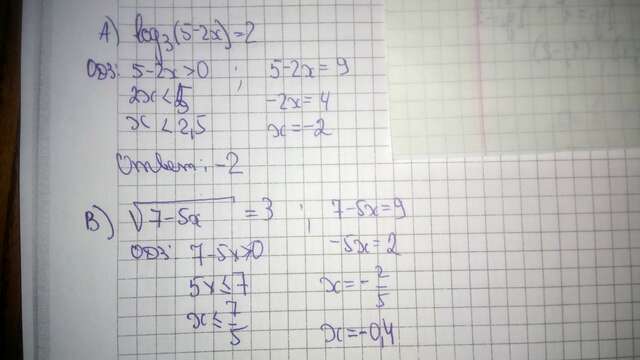 А) log₃(5-2x)=2
ОДЗ: 5-2x>0 ; 5-2x=9
2x<5 -2x=4
x<2,5 x=-2
Ответ: -2
В) √7-5x = 3 ; 7-5x=9
ОДЗ: 7-5x>0 -5x=2
5x≤7 x=-2/5
x≤7/5 x=-0,4